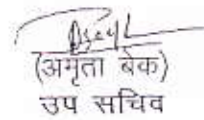 (अमृता बेक)
उप सचिव